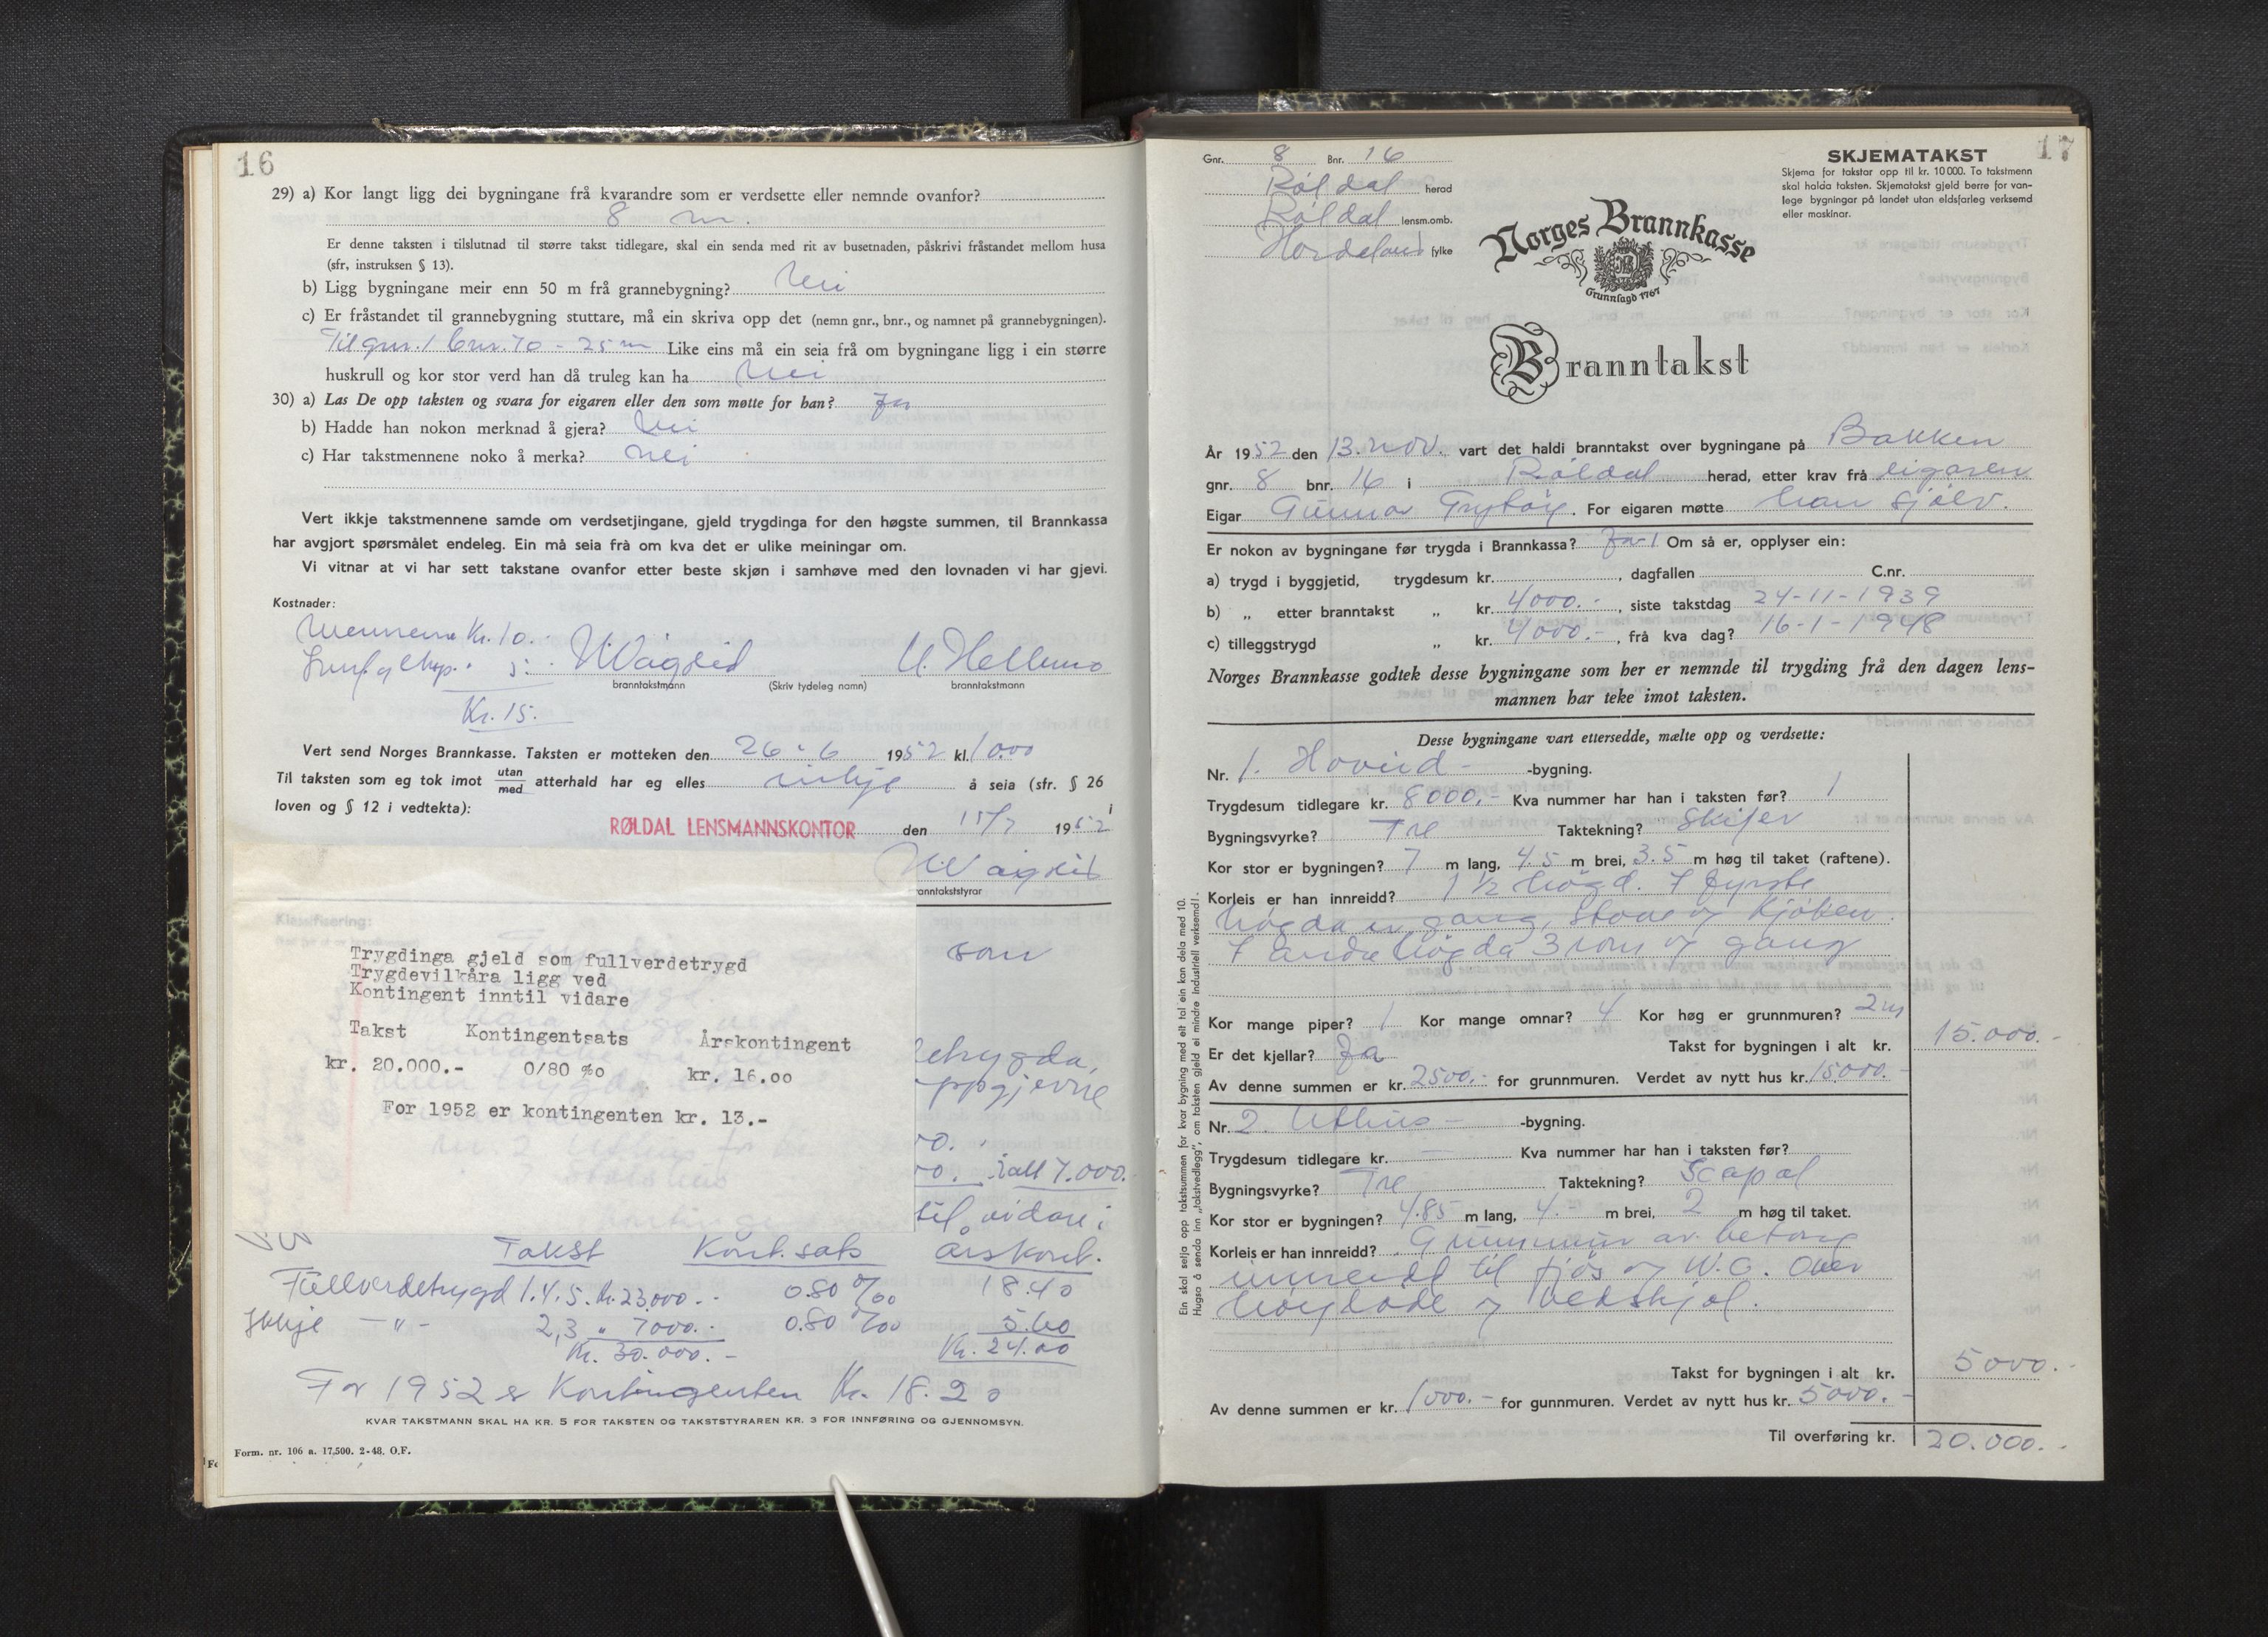 16
29) a) Kor langt ligg dei bygningane frå kvarandre som er verdsette eller nemnde ovanfor?
8 m.
Er denne taksten i tilslutnad til større takst tidlegare, skal ein senda med rit av busetnaden, påskrivi fråstandet mellom husa
(sfr, instruksen § 13).
b) Ligg bygningane meir enn 50 m frå grannebygning? Nei
c) Er fråstandet til grannebygning stuttare, må ein skriva opp det (nemn gnr., bnr., og namnet på grannebygningen).
Til gnr. 1 bnr. 70 - 25 m Like eins må ein seia frå om bygningane ligg i ein større
huskrull og kor stor verd han då truleg kan ha Nei
30) a) Las De opp taksten og svara for eigaren eller den som møtte for han? Ja
b) Hadde han nokon merknad å gjera? Nei
c) Har takstmennene noko å merka? Nei
Vert ikkje takstmennene samde om verdsetjingane, gjeld trygdinga for den høgste summen, til Brannkassa
har avgjort spørsmålet endeleg. Ein må seia frå om kva det er ulike meiningar om.
Vi vitnar at vi har sett takstane ovanfor etter beste skjøn i samhøve med den lovnaden vi har gjevi.
Kostnader:
Mennene Kr. 10.-
5.- N Vågslid U. Helluno
branntakstmann (Skriv tydeleg namn) branntakstmann
Kr. 15.
Vert send Norges Brannkasse. Taksten er motteken den 26-6 1952 kl. 1000
Til taksten som eg tok imot utan/med atterhald har eg elles inkje å seia (sfr. § 26
loven og § 12 i vedtekta):
RØLDAL LENSMANNSKONTOR den 15/7 1952
N Vågslid
branntakststyrar
Klassifisering:
som
Trygdinga gjeld som fullverdetrygd
Trygdevilkåra ligg ved
Kontingent inntil vidare
Takst Kontingentsats Årskontingent
kr. 20.000.- 0/80 %o kr. 16.00
For 1952 er kontingenten kr. 13.-
etrygda,
ppgjevne
00.
00. i alt 7.000.-
til vidare i
Takst Kont. sats årskont.
Fullverdetrygd 1.4.5. kr. 23000.- 0.80 %o 18.40
Ikkje -"- 2,3 " 7000.- 0.80 %o 5.60
Kr. 30.000.- Kr. 24.00
For 1952 er Kontingenten Kr. 18.20
KVAR TAKSTMANN SKAL HA KR. 5 FOR TAKSTEN OG TAKSTSTYRAREN KR. 3 FOR INNFØRING OG GJENNOMSYN.
Form. nr. 106 a. 17,500. 2-48. O.F.
17
Gnr. 8 Bnr. 16
Røldal herad
Røldal lensm.omb.
Hordaland fylke
SKJEMATAKST
Skjema for takstar opp til kr. 10 000. To takstmenn
skal halda taksten. Skjematakst gjeld berre for van-
lege bygningar på landet utan eldsfarleg verksemd
eller maskinar.
Norges Brannkasse
Grunnlagd 1767
Branntakst
År 1952 den 13. nov. vart det haldi branntakst over bygningane på Bakken
gnr. 8 bnr. 16 i Røldal herad, etter krav frå eigaren
Eigar Gunnar Frybøig. For eigaren møtte han sjølv.
Er nokon av bygningane før trygda i Brannkassa? Ja 1 Om så er, opplyser ein:
a) trygd i byggjetid, trygdesum kr. , dagfallen C.nr.
b) „ etter branntakst „ kr. 4000.-, siste takstdag 24-11-1939
c) tilleggstrygd „ kr. 4000.-, frå kva dag? 16-1-1948
Norges Brannkasse godtek desse bygningane som her er nemnde til trygding frå den dagen lens-
mannen har teke imot taksten.
Desse bygningane vart ettersedde, mælte opp og verdsette:
Nr. 1. Hovud- -bygning.
Trygdesum tidlegare kr. 8000.- Kva nummer har han i taksten før? 1
Bygningsvyrke? Tre Taktekning? Skifer
Kor stor er bygningen? 7 m lang, 4.5 m brei, 3.5 m høg til taket (raftene).
Korleis er han innreidd? 1 ½ høgd. I fyrste
høgda er gang, stove og kjøken.
I andre høgda 3 rom og gang
Kor mange piper? 1 Kor mange omnar? 4 Kor høg er grunnmuren? 2 m
Er det kjellar? Ja Takst for bygningen i alt kr. 15.000.-
Av denne summen er kr. 2500.- for grunnmuren. Verdet av nytt hus kr. 15000.-
Nr. 2. Uthus- -bygning.
Trygdesum tidlegare kr. — Kva nummer har han i taksten før?
Bygningsvyrke? Tre Taktekning? Scapol
Kor stor er bygningen? 4.85 m lang, 4.- m brei, 2 m høg til taket.
Korleis er han innreidd? Grunnmur av betong
innreidt til fjøs og W.C. Over
høyløde og vedskjol.
Takst for bygningen i alt kr. 5000.-
Av denne summen er kr. 1000.- for gunnmuren. Verdet av nytt hus kr. 5000.-
Til overføring kr. 20.000.-
Ein skal setja opp takstsummen for kvar bygning med eit tal ein kan dela med 10.
Hugso å senda inn „takstvedlegg", om taksten gjeld ei mindre industriell verksemd!